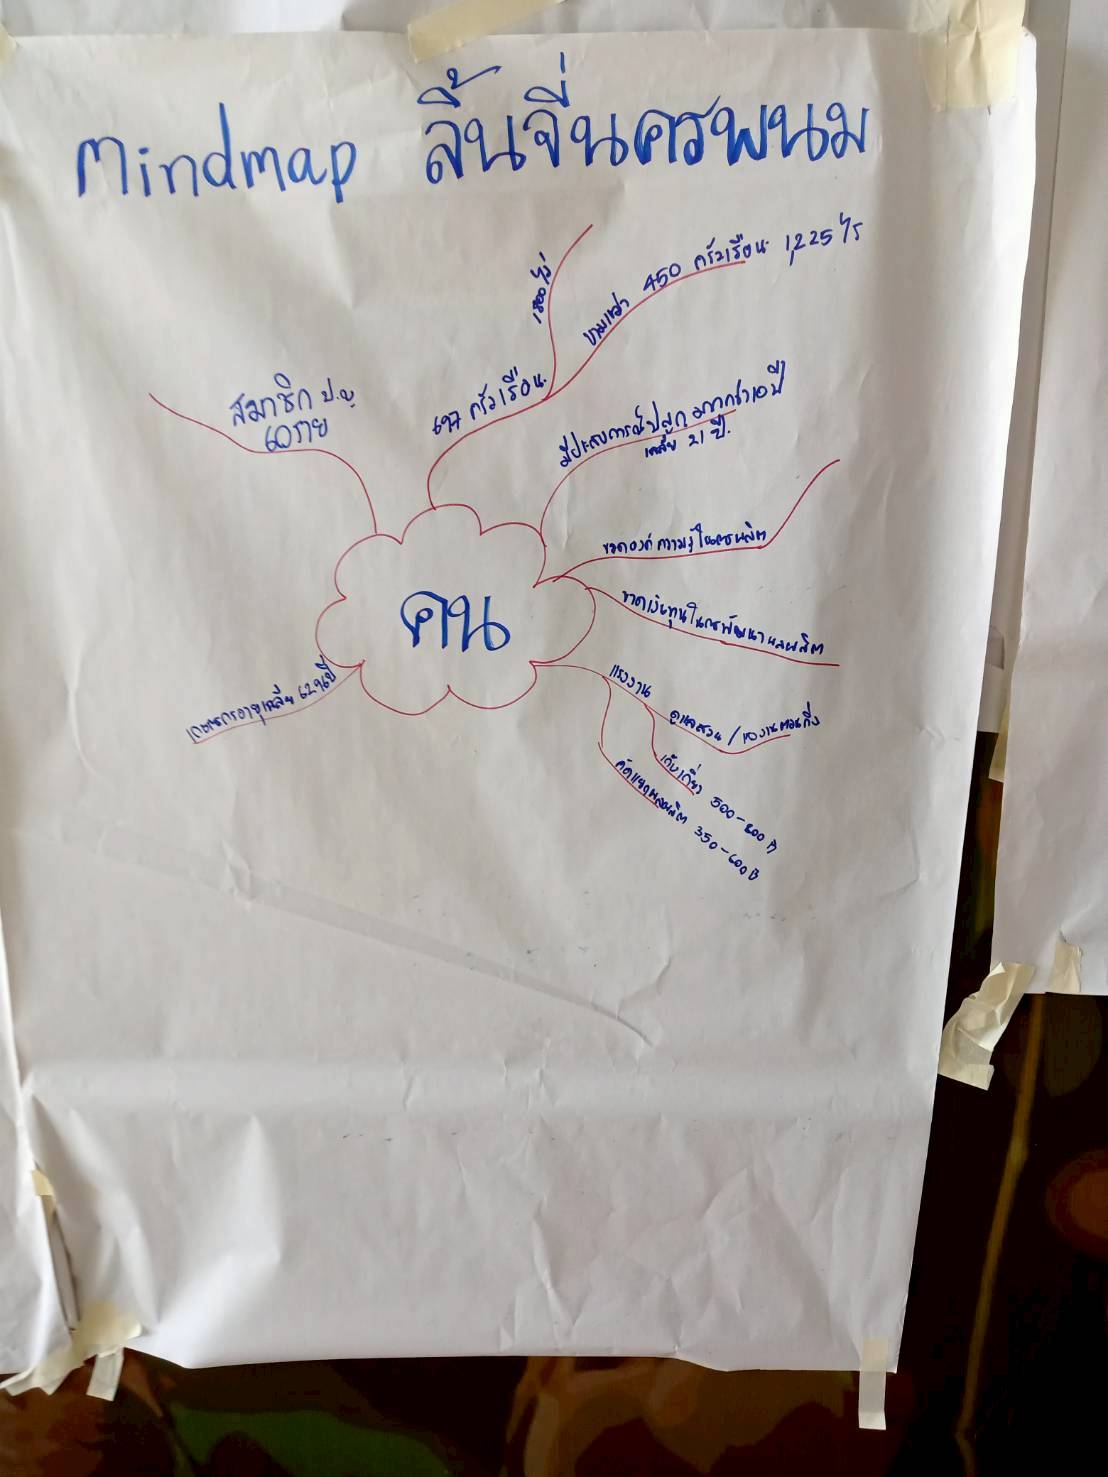 mindmap ลิ้นจี่นครพนม
1,225 ไร่
450 ครัวเรือน
ขามเฒ่า
ไร่
697 ครัวเรือน
สมาชิก
มีประสบการณ์ปลูก มากกว่า 20 ปี
เฉลี่ย 21 ปี.
ขาดองค์ความรู้ในการผลิต
คน
ขาดเงินทุนในการพัฒนาผลผลิต
แรงงาน
เกษตรกรอายุเฉลี่ย ปี
ดูแลสวน /
เก็บเกี่ยว 500-600 ฿
คัดแยกผลผลิต 350-600 ฿